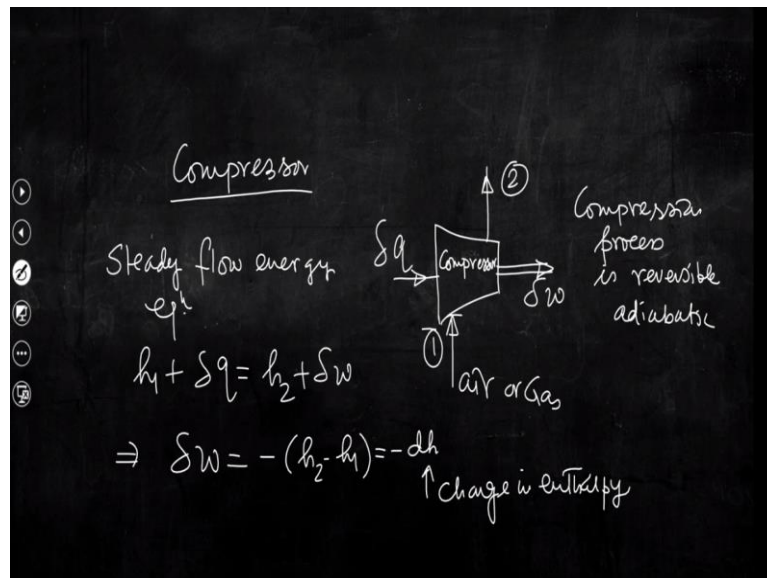 Compressor
Steady flow energy
eqⁿ
h₁ + δq = h₂ + δw
⇒ δw = -(h₂-h₁) = -dh
↑ change in enthalpy
②
δq
Compressor
δw
①
air or Gas
Compression
process
is reversible
adiabatic